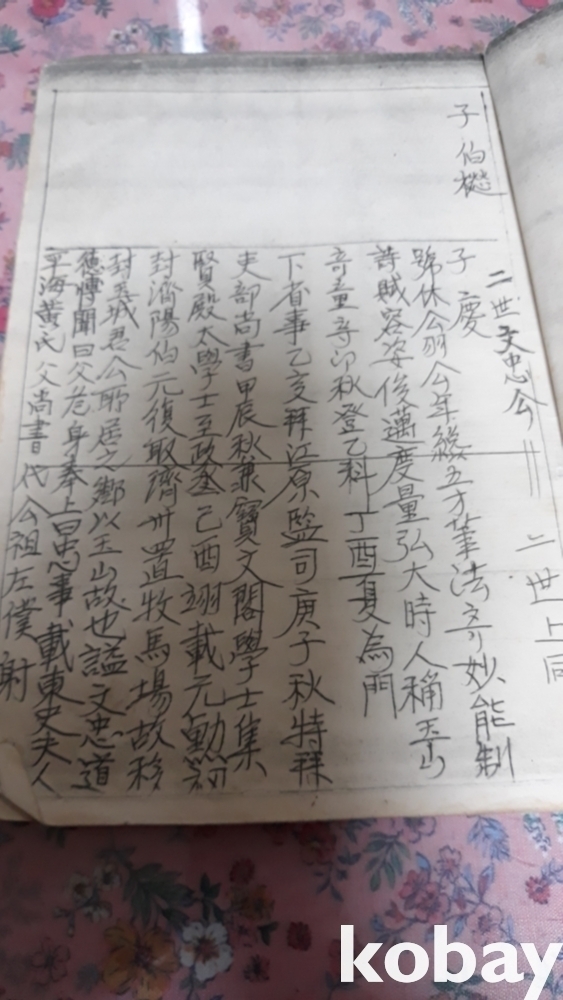 子 伯 懋
二世文忠公
二世上同
子 慶
號休公羽公年纔五才筆法奇妙能制
詩賦容姿俊邁度量弘大時人稱玉山
奇童辛卯秋登乙科丁酉夏為門
下省事乙亥拜江原監司庚子秋特拜
吏部尚書甲辰秋兼寶文閣學士集
賢殿太學士至政堂己酉翊載元勳
封濟陽伯元復取濟州置牧馬場故移
封玉城君公所居之鄉以玉山故也謚文忠道
德博聞曰父危身奉上曰忠事載東史夫人
平海黃氏父尚書代公祖左僕射
kobay